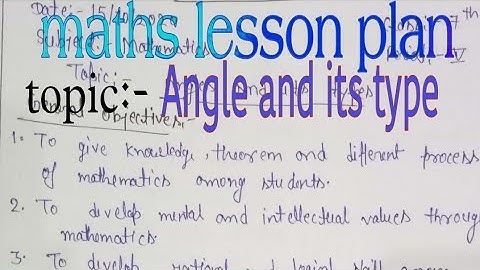 Date:- 15/10/2020
Class:- 7th
maths lesson plan
Subject:- Mathematics
V
Topic:-
topic:- Angle and its type
General objectives:-
1. To give knowledge, theorem and different process
of mathematics among students.
2. To develop mental and intellectual values through
mathematics.
3. To develop rational and logical skill among